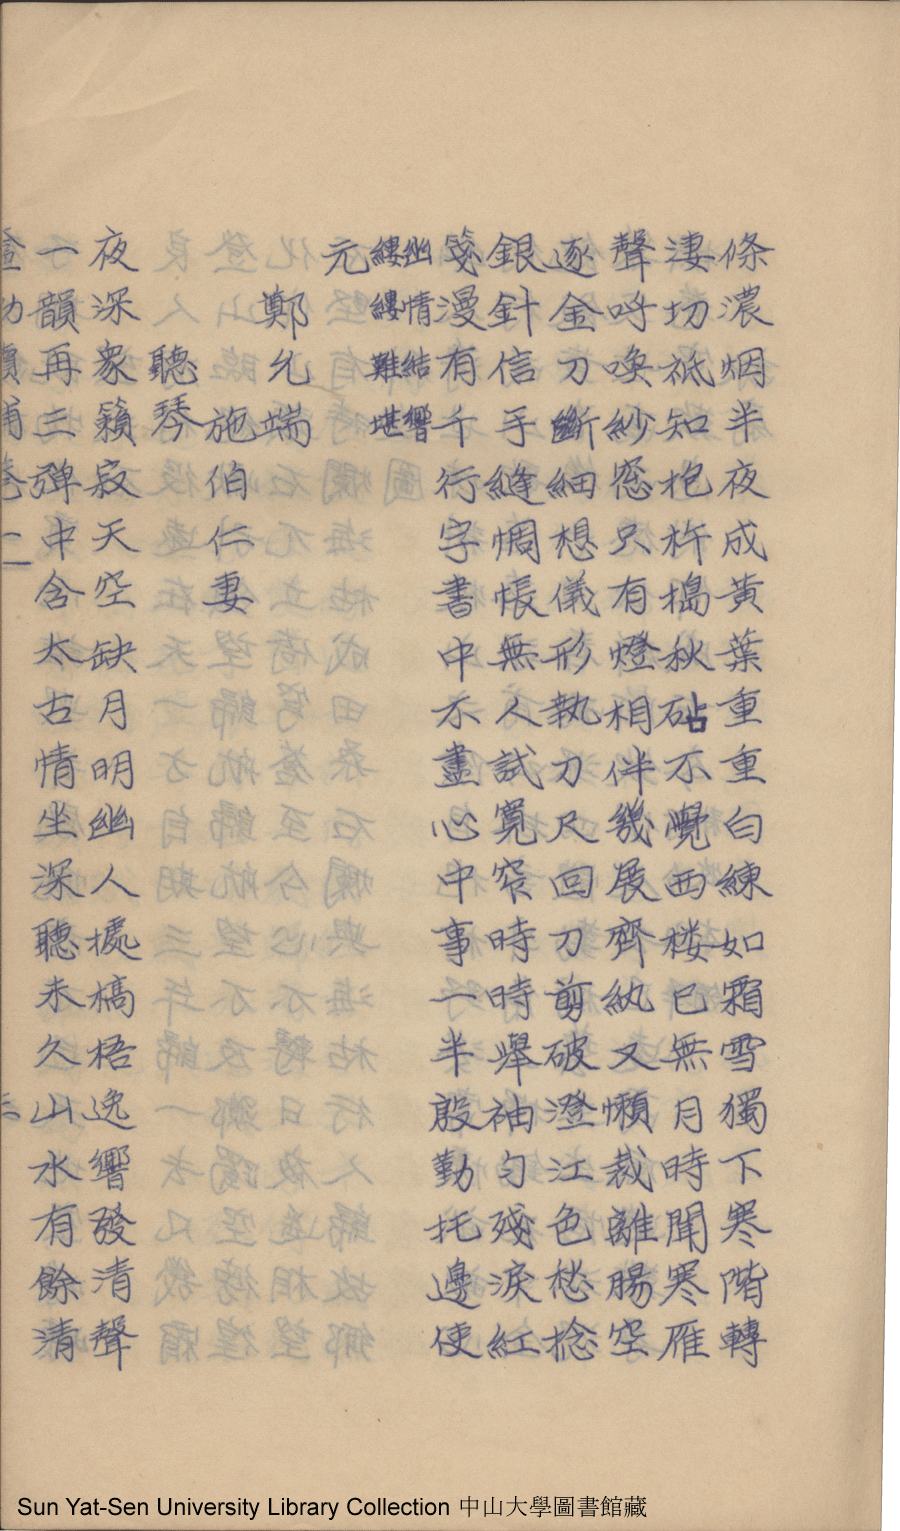 條濃烟半夜成黃葉重重白練如霜雪獨下寒階轉
淒切祗知抱杵搗秋砧不覺西楼已無月時聞寒雁
聲呼喚紗窓只有燈相伴幾展齊紈又懶裁離腸空
逐金刀斷細想儀形執刀尺回刀剪破澄江色愁捻
銀針信手縫惆悵無人試寬窄時時舉袖匀殘淚紅
箋漫有千行字書中不盡心中事一半殷勤托邊使
幽情結響
縷縷難堪
元
鄭允端
施伯仁妻
聽琴
夜深衆籟寂天空缺月明幽人據槁梧逸響發清聲
一韻再三弹中含太古情坐深聽未久山水有餘清
Sun Yat-Sen University Library Collection 中山大學圖書館藏